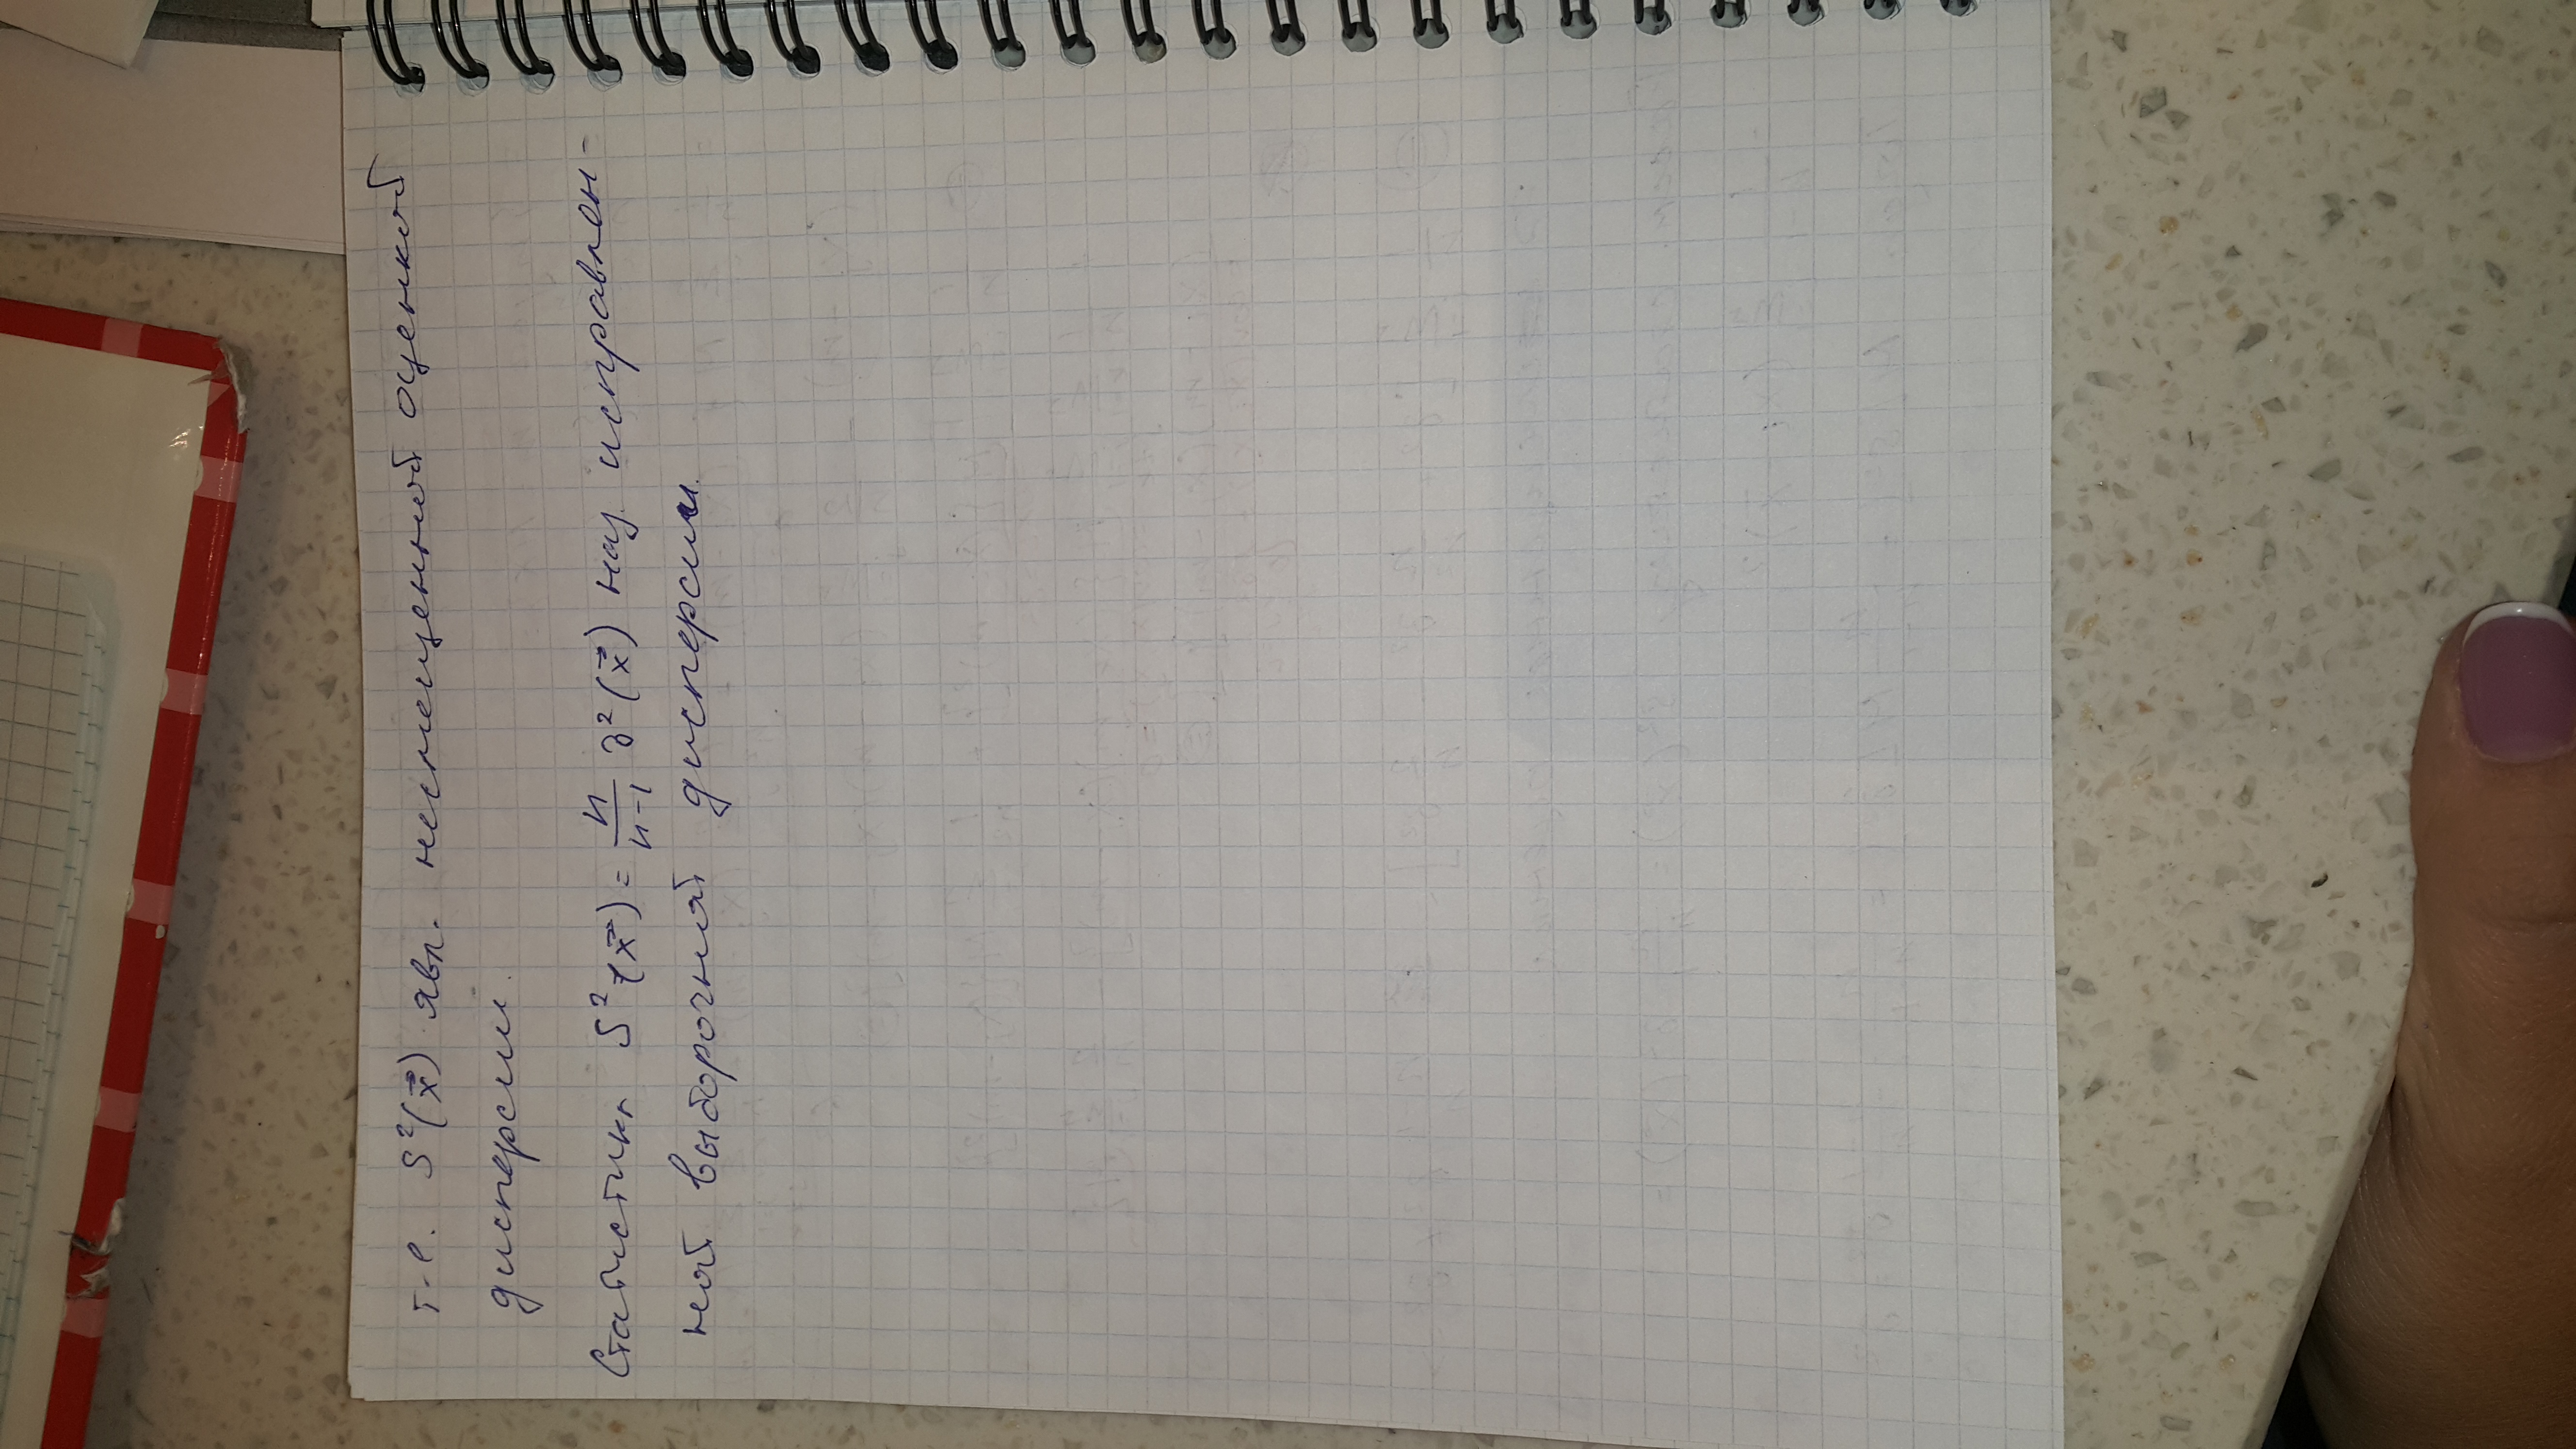 т.е. S²(x⃗) явл. несмещенной оценкой
дисперсии.
Статистика S²(x⃗) = n/(n-1) σ̂²(x⃗) наз. исправлен-
ной выборочной дисперсии.